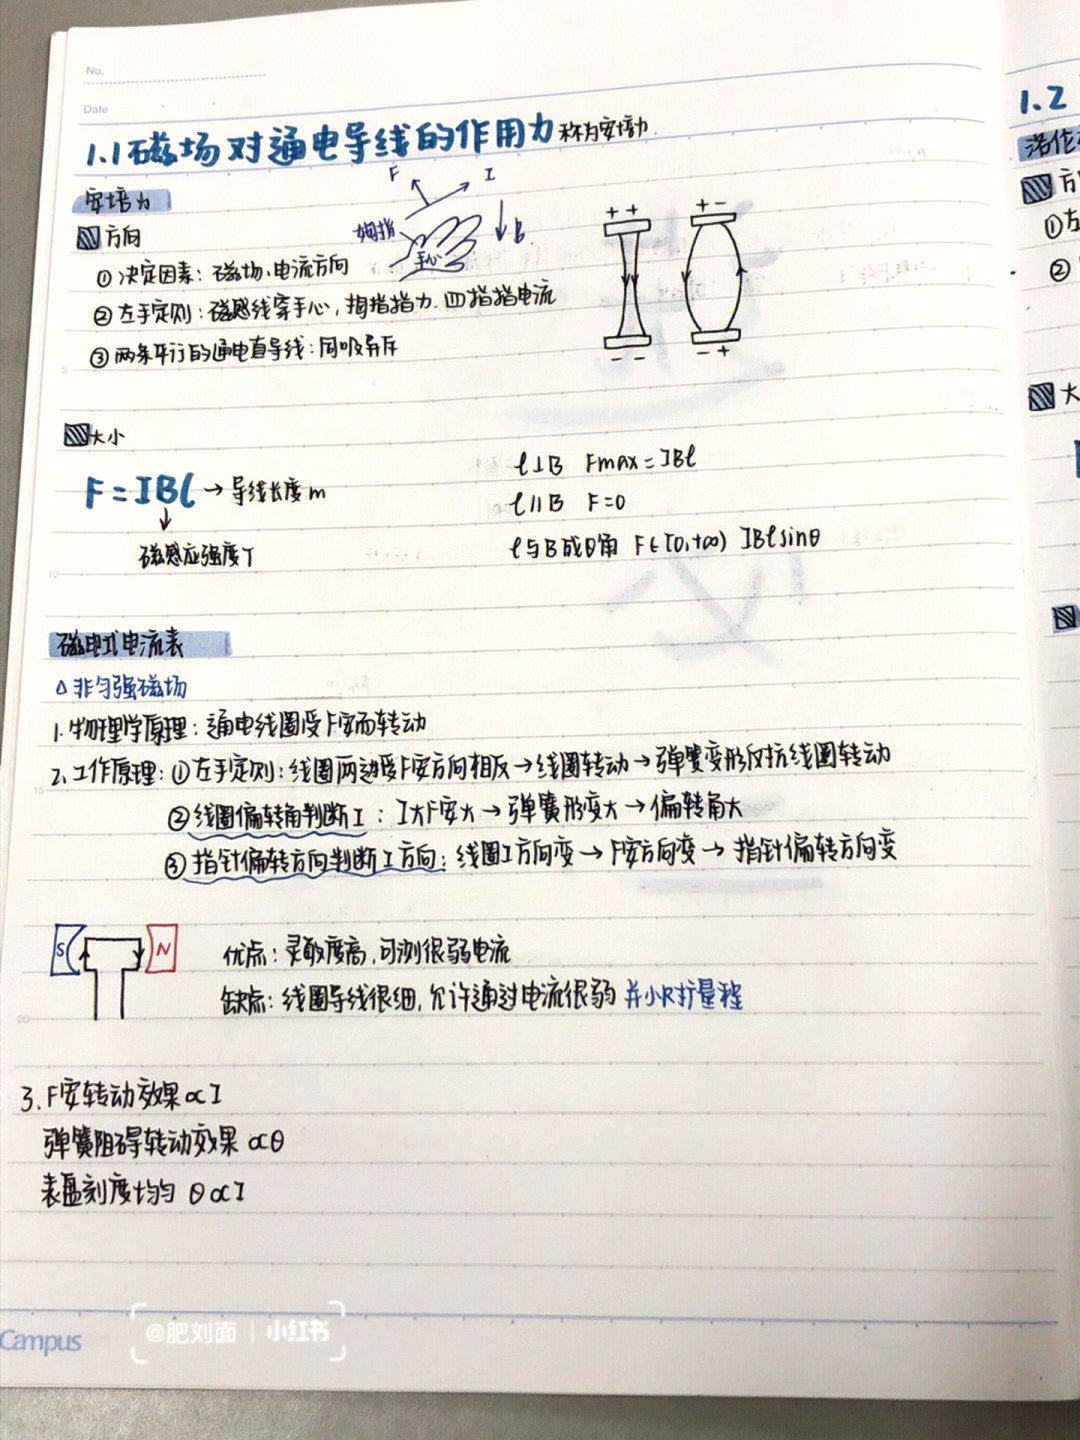 No.
Date
1.1 磁场对通电导线的作用力 称为安培力
安培力
F I
拇指 手心 B
方向
① 决定因素：磁场、电流方向
② 左手定则：磁感线穿手心，拇指指力.四指指电流
③ 两条平行的通电直导线：同吸异斥
+ + + -
- - - +
大小
F=IBl → 导线长度 m
磁感应强度 T
l⊥B Fmax=IBl
l∥B F=0
l与B成θ角 F∈[0,+∞) IBlsinθ
磁电式电流表
△非匀强磁场
1. 物理学原理：通电线圈受F安而转动
2. 工作原理：①左手定则：线圈两边受F安方向相反→线圈转动→弹簧变形反抗线圈转动
②线圈偏转角判断I：I大F安大→弹簧形变大→偏转角大
③指针偏转方向判断I方向：线圈I方向变→F安方向变→指针偏转方向变
S N
优点：灵敏度高，可测很弱电流
缺点：线圈导线很细，允许通过电流很弱 并小R扩量程
3. F安转动效果∝I
弹簧阻碍转动效果∝θ
表盘刻度均匀 θ∝I
Campus
@肥刘面 | 小红书
1.2
①左
②
大